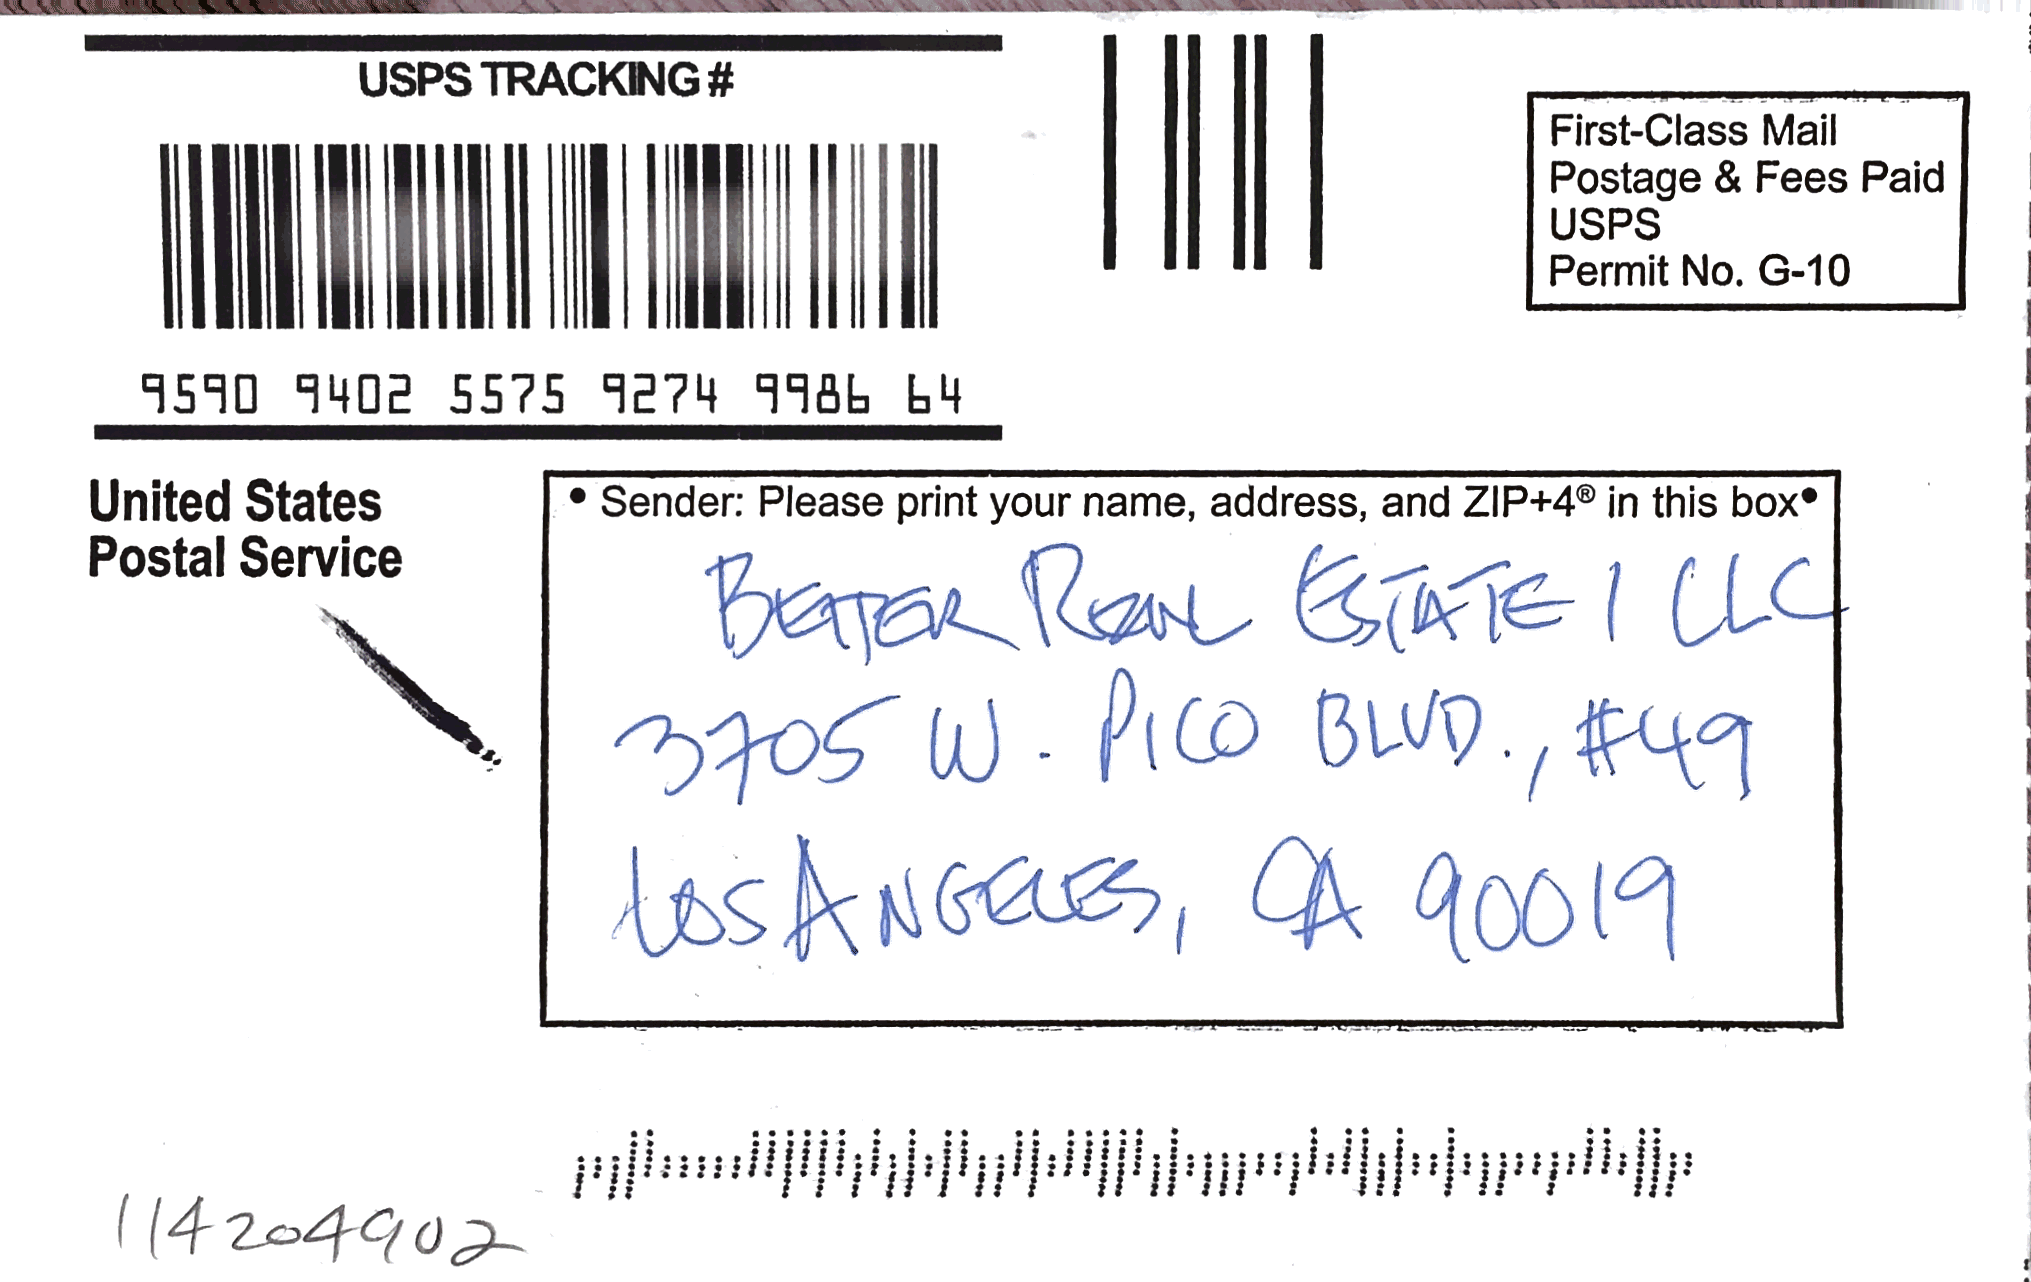 USPS TRACKING #
9590 9402 5575 9274 9986 64
First-Class Mail
Postage & Fees Paid
USPS
Permit No. G-10
United States
Postal Service
• Sender: Please print your name, address, and ZIP+4® in this box•
BETTER REAL ESTATE 1 LLC
3705 W. PICO BLVD., #49
LOS ANGELES, CA 90019
114204902